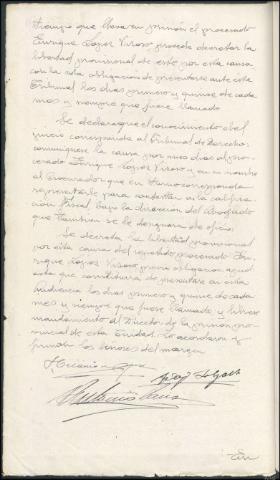 tiempo que lleva en prisión el procesado
Enrique Lopez Viroso, proceda decretar la
libertad provisional de este por esta causa
con la sola obligacion de presentarse ante este
Tribunal los dias primero y quince de cada
mes y siempre que fuere llamado
Se declara que el conocimiento del
juicio corresponde al Tribunal de Derecho;
comuniquese la causa por dias al pro-
cesado Enrique Lopez Viroso y en su nombre
al Procurador que en turno corresponda
representarle para la califica-
ción fiscal bajo la direccion del Abogado
que tambien se le designara de oficio.
Se decreta la libertad provisional
por esta causa del repetido procesado En-
rique Lopez Viroso previa obligacion apud
acta que constituira de presentarse en esta
Audiencia los dias primero y quince de cada
mes y siempre que fuere llamado y librese
mandamiento al Director de la prision pro-
vincial de esta Ciudad. Lo acordaron y
firman los Señores del margen